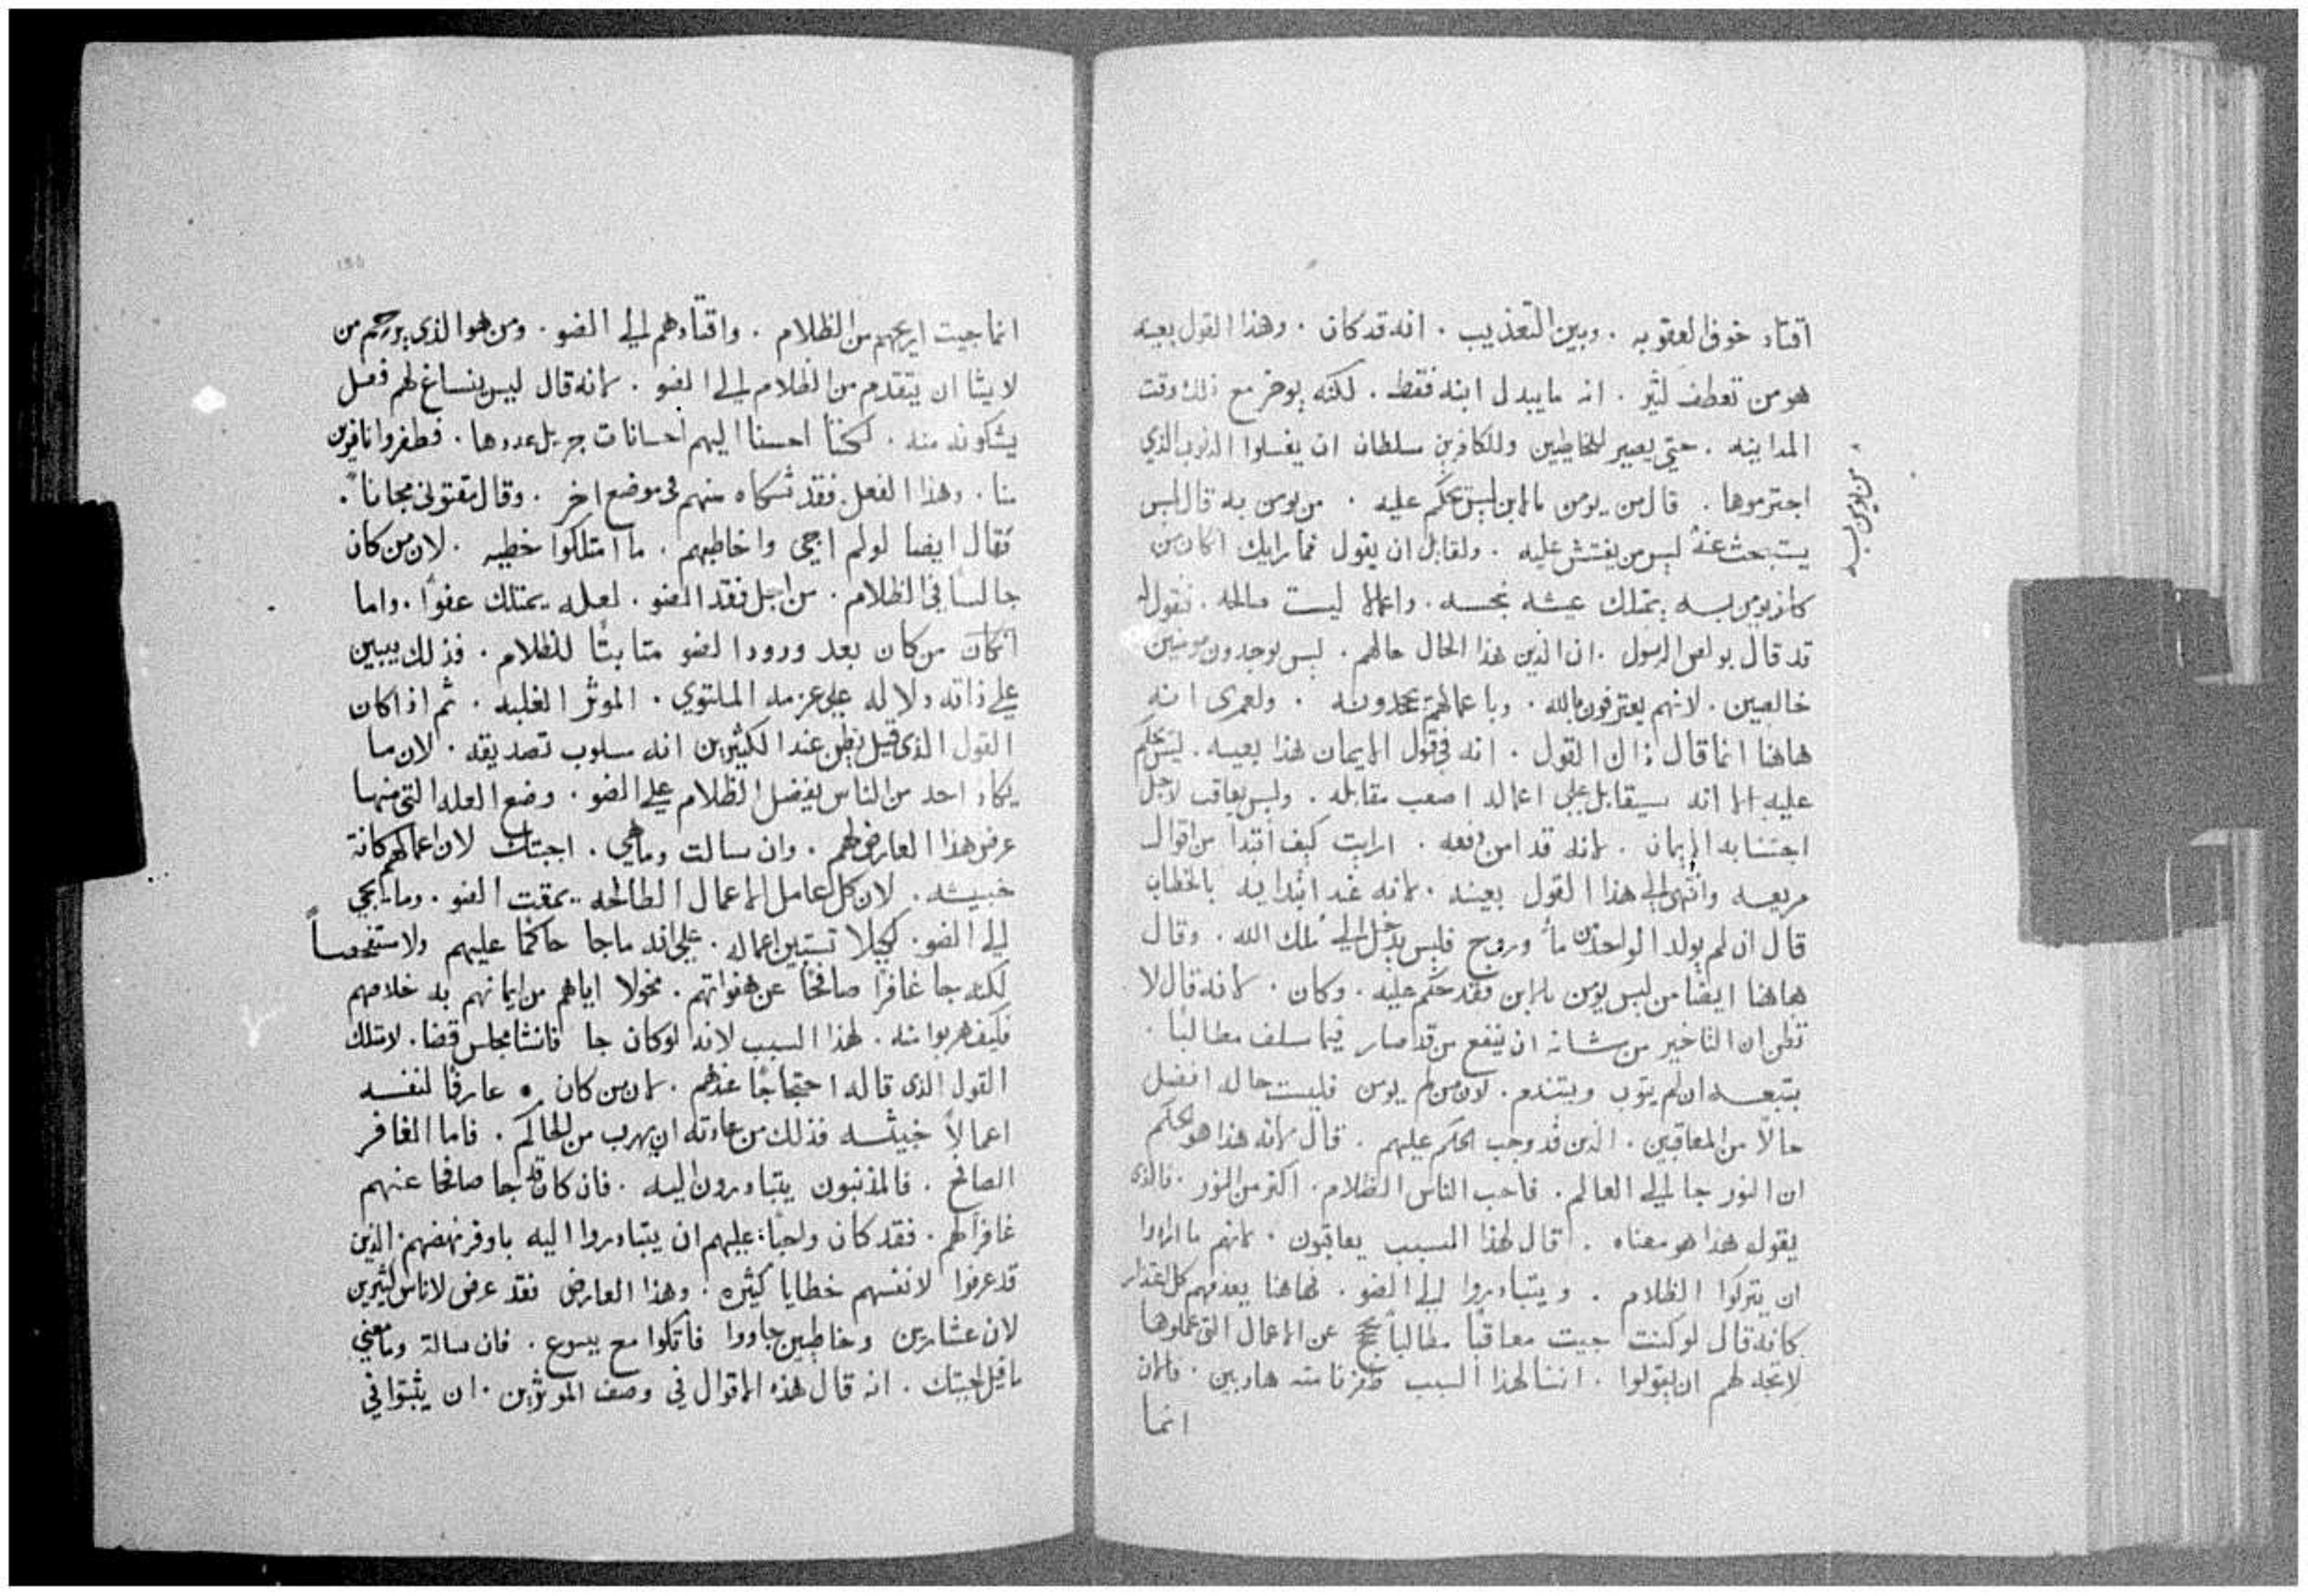 اقتاد خوف العقوبه . وبين التعذيب . انه قد كان . وهذا القول بعينه
هو من تعطف كثير . انه ما يبدل ابنه فقط . لكنه يوخر مع ذلك وقت
المداينه . حتي يصير للخاطيين وللكافرين سلطان ان يغسلوا الذنوب الذي
اجترموها . قال من يومن بالابن ليس يحكم عليه . من يومن به قال ليس
يستبحث عنه ليس من يفتش عليه . ولقايل ان يقول فما رايك ان كان من
كان يومن به يمتلك عيشه نجسه . واعمالا ليست صالحه . فنقول له
قد قال بولص الرسول . ان الذين هذا الحال حالهم . ليس يوجدون مومنين
خالصين . لانهم يعترفون بالله . وباعمالهم يجحدونه . ولعمري انه
هاهنا انما قال ذلك القول . انه في قول الايمان هذا بعينه . ليس يحكم
عليه الا انه سيقابل علي اعماله اصعب مقابله . وليس يعاقب لاجل
اجتنابه الايمان . لانه قد امن دفعه . ارايت كيف ابتدا من اقوال
مريعه وانتهي الي هذا القول بعينه . لانه عند ابتدايه بالخطاب
قال ان لم يولد الواحد من ما وروح فليس يدخل الي ملك الله . وقال
هاهنا ايضا من ليس يومن بالابن فقد حكم عليه . وكان . كانه قال لا
تظن ان التاخير من شانه ان ينفع من قد صار فيما سلف مطالبا .
بتبعه ان لم يتوب ويتندم . لان من لم يومن فليست حاله افضل
حالا من المعاقبين . الذين قد وجب الحكم عليهم . قال لانه هذا هو الحكم
ان النور جا الي العالم . فاحب الناس الظلام . اكثر من النور . فالذي
يقوله هذا هو معناه . قال لهذا السبب يعاقبون . لانهم ما ارادوا
ان يتركوا الظلام . ويتبادروا الي الضو . فهاهنا يعدمهم كل اعتذار
كانه قال لو كنت جيت معاقبا مطالبا عن الاعمال التي عملوها
لاتجه لهم ان يقولوا . اننا لهذا السبب طفرنا منه هاربين . فالان
انما
من يومن به
انما جيت اريحهم من الظلام . واقتادهم الي الضو . ومن هو الذي يرحم من
لا يشا ان يتقدم من الظلام الي الضو . لانه قال ليس ينساغ لهم فعل
يشكونه منه . لكننا احسنا اليهم احسانات جزيل عددها . فطفروا نافرين
منا . وهذا الفعل فقد شكاه منهم في موضع اخر . وقال مقتوني مجانا .
فقال ايضا لو لم اجي واخاطبهم . ما امتلكوا خطيه . لان من كان
جالسا في الظلام . من اجل فقد الضو . لعله يمتلك عفوا . واما
ان كان من كان بعد ورود الضو متابتا للظلام . فذلك يبين
علي ذاته دلاله علي عزمه الملتوي . الموثر الغلبه . ثم اذ كان
القول الذي قيل يظن عند الكثيرين انه مسلوب تصديقه . لان ما
يكاد احد من الناس يفضل الظلام علي الضو . وضع العله التي منها
عرض هذا العارض لهم . وان سالت وما هي . اجبتك لان اعمالهم كانة
خبيثه . لان كل عامل الاعمال الطالحه يمقت الضو . وما يجي
الي الضو . لكيلا تستبين اعماله . علي انه ما جا حاكما عليهم ولا مستفحصا
لكنه جا غافرا صافحا عن هفواتهم . مخولا اياهم من ايمانهم به خلاصهم
فكيف هربوا منه . لهذا السبب لانه لو كان جا فانشا مجلس قضا . لامتلك
القول الذي قاله احتجاجا عندهم . لان من كان . عارفا لنفسه
اعمالا خبيثه فذلك من عادته ان يهرب من الحاكم . فاما الغافر
الصافح . فالمذنبون يتبادرون اليه . فان كان قد جا صافحا عنهم
غافرا لهم . فقد كان واجبا عليهم ان يتبادروا اليه باوفر نهضهم . الذين
قد عرفوا لانفسهم خطايا كثيره . وهذا العارض فقد عرض لاناس كثيرين
لان عشارين وخاطيين جاووا فاتكوا مع يسوع . فان سالة وما معني
ما قيل اجبتك . انه قال هذه الاقوال في وصف الموثرين . ان يثبتوا في